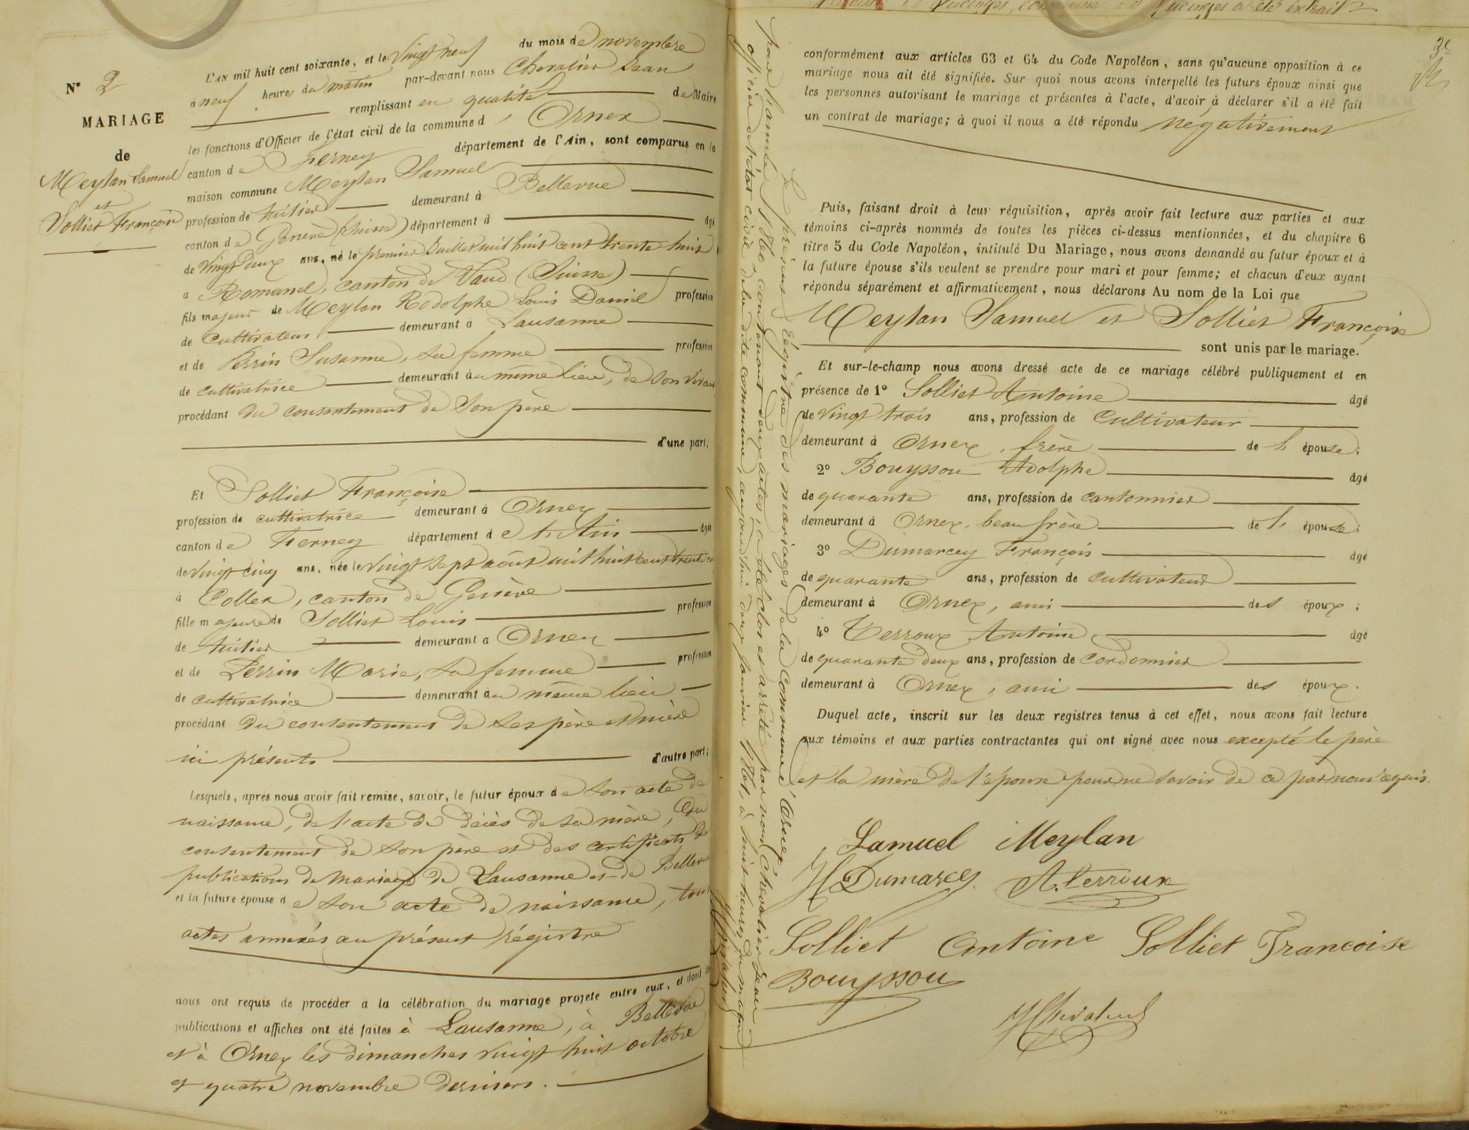 N° 2
MARIAGE
de
Meylan Samuel
et
Solliet Françoise
L'AN mil huit cent soixante, et le vingt neuf du mois de novembre
à neuf heures du matin par-devant nous Chevalier Jean
remplissant en qualité de Maire
les fonctions d'Officier de l'état civil de la commune d'Ornex
canton de Ferney département de l'Ain, sont comparus en la
maison commune Meylan Samuel
profession de laitier demeurant à Bellevue
canton de Genève (Suisse) département d âgé
de vingt deux ans, né le premier Juillet mil huit cent trente huit
à Romanel, canton de Vaud (Suisse)
fils majeur de Meylan Rodolphe Louis Daniel profession
de cultivateur demeurant à Lausanne
et de Perrin Susanne, sa femme profession
de cultivatrice demeurant au même lieu, de son vivant
procédant du consentement de son père
d'une part;
Et Solliet Françoise
profession de cultivatrice demeurant à Ornex
canton de Ferney département de l'Ain âgée
de vingt cinq ans, née le vingt sept août mil huit cent trente
à Collex, canton de Genève
fille majeure de Solliet Louis profession
de laitier demeurant à Ornex
et de Perrin Marie, sa femme profession
de cultivatrice demeurant au même lieu
procédant du consentement de ses père et mère
ici présents d'autre part;
Lesquels, après nous avoir fait remise, savoir, le futur époux de son acte de
naissance, de l'acte de décès de sa mère, du
consentement de son père et des certificats de
publications de mariage de Lausanne et de Bellevue
et la future épouse de son acte de naissance, tous
actes annexés au présent régistre
nous ont requis de procéder à la célébration du mariage projeté entre eux, et dont les
publications et affiches ont été faites à Lausanne, à Bellevue
et à Ornex les dimanches vingt huit octobre
et quatre novembre derniers.
conformément aux articles 63 et 64 du Code Napoléon, sans qu'aucune opposition à ce
mariage nous ait été signifiée. Sur quoi nous avons interpellé les futurs époux ainsi que
les personnes autorisant le mariage et présentes à l'acte, d'avoir à déclarer s'il a été fait
un contrat de mariage; à quoi il nous a été répondu négativement
Puis, faisant droit à leur réquisition, après avoir fait lecture aux parties et aux
témoins ci-après nommés de toutes les pièces ci-dessus mentionnées, et du chapitre 6
titre 5 du Code Napoléon, intitulé Du Mariage, nous avons demandé au futur époux et à
la future épouse s'ils veulent se prendre pour mari et pour femme; et chacun d'eux ayant
répondu séparément et affirmativement, nous déclarons Au nom de la Loi que
Meylan Samuel et Solliet Françoise
sont unis par le mariage.
Et sur-le-champ nous avons dressé acte de ce mariage célébré publiquement et en
présence de 1° Solliet Antoine âgé
de vingt trois ans, profession de cultivateur
demeurant à Ornex, frère de l'épouse;
2° Bouyssou Adolphe âgé
de quarante ans, profession de cantonnier
demeurant à Ornex, beau frère de l'épouse;
3° Dumarcey François âgé
de quarante ans, profession de cultivateur
demeurant à Ornex, ami des époux;
4° Terroux Antoine âgé
de quarante deux ans, profession de cordonnier
demeurant à Ornex, ami des époux.
Duquel acte, inscrit sur les deux registres tenus à cet effet, nous avons fait lecture
aux témoins et aux parties contractantes qui ont signé avec nous excepté le père
et la mère de l'épouse pour ne savoir de ce par nous requis.
Samuel Meylan
Dumarcey A. Terroux
Solliet Antoine Solliet Françoise
Bouyssou
Chevalier
Le présent régistre des mariages de la commune d'Ornex
pour l'année 1860, contenant deux actes, a été clos et arrêté par nous Chevalier Jean
officier de l'état civil de la dite commune, aujourd'hui deux janvier 1861, à huit heures du matin